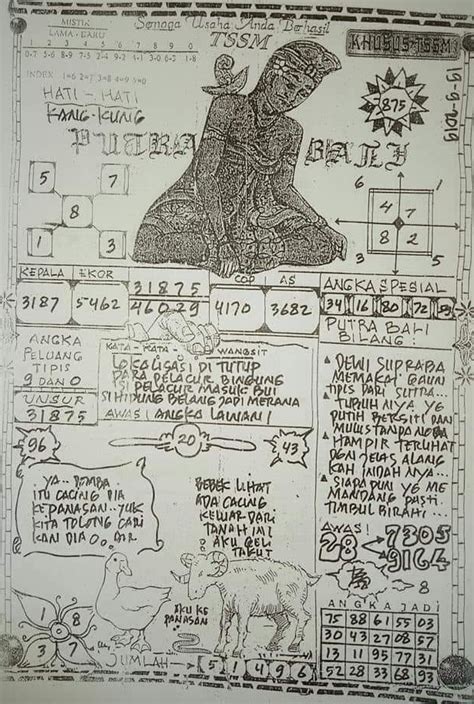 Semoga Usaha Anda Berhasil
TSSM
KHUSUS-TSSM
MISTIK
LAMA - BARU
1 2 3 4 5 6 7 8 9 0
INDEX
HATI - HATI
KANG-KUNG
PUTRA BALI
19-9-2019
875
5 7
8
1 3
6 1
4 7
8 2
3 5
KEPALA EKOR
3187 5462
31875
46029
COP AS
4170 3682
ANGKA SPESIAL
34 16 80 72 59
ANGKA
PELUANG
TIPIS
9 DAN 0
UNSUR
31875
KATA - KATA - WANGSIT
LOKALISASI DI TUTUP
PARA PELACUR BINGUNG
SI PELACUR MASUK BUI
SI HIDUNG BELANG JADI MERANA
AWAS! ANGKA LAWAN!
PUTRA BALI
BILANG:
DEWI SUPRABA
MEMAKAI GAUN
TIPIS DARI SUTRA...
TUBUHNYA YG
PUTIH BERSIH DAN
MULUS TANPA NODA
HAMPIR TERLIHAT
DGN JELAS ALANG
KAH INDAHNYA...
SIAPAPUN YG ME
MANDANG PASTI
TIMBUL BIRAHI...
96
20
43
YA.. DOMBA
ITU CACING DIA
KEPANASAN...YUK
KITA TOLONG CARI
KAN DIA AIR
BEBEK LIHAT
ADA CACING
KELUAR DARI
TANAH INI
AKU GELI
TAKUT
AKU KE
PANASAN
AWAS!
28
7305
9164
8
1 8
3 7
JUMLAH
5 1 4 9 6
ANGKA JADI
75 88 61 55 03
30 43 27 08 57
13 11 95 77 31
52 28 33 68 93